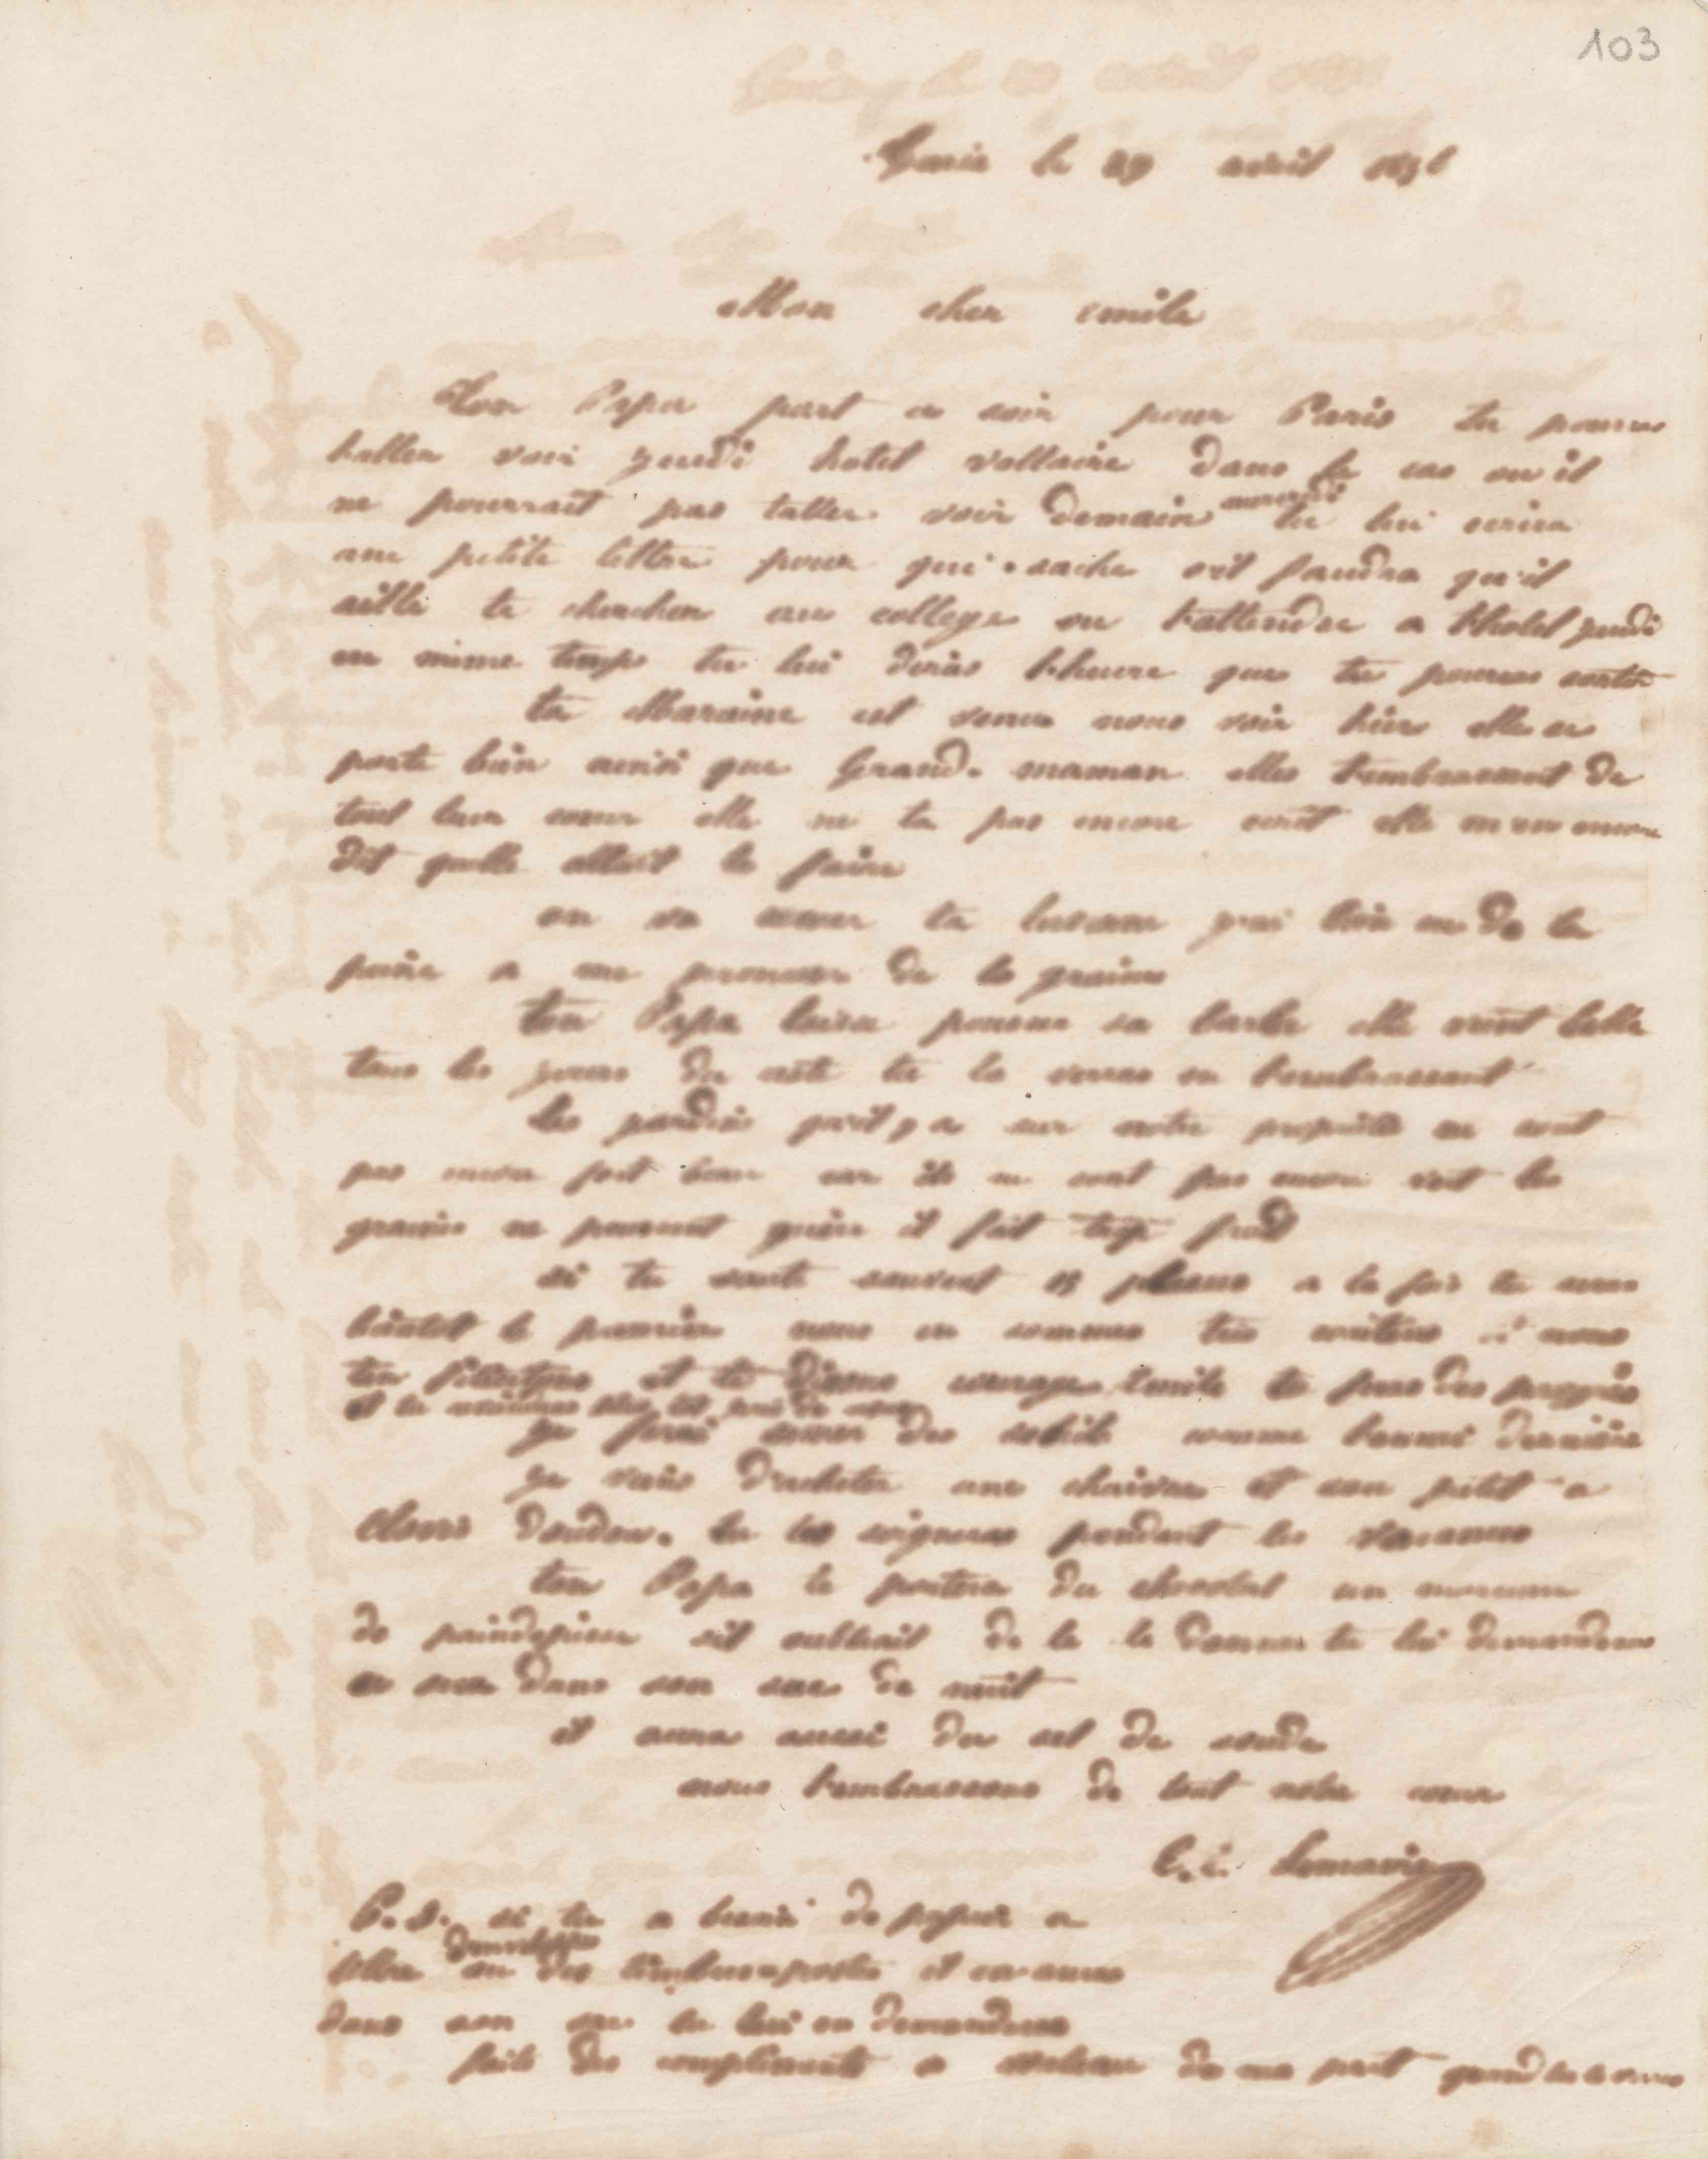 103
le 29 avril
Mon cher emile
Ton Papa part ce soir pour Paris tu pourras
taller voir jeudi hotel voltaire dans le cas ou il
ne pourrait pas taller voir demain tu lui ecrira
une petite lettre pour qui sache s'il faudra qu'il
aille te chercher au college ou t'attendre a l'hotel jeudi
en meme temps tu lui diras l'heure que tu pourras sortir
ta Maraine est venue nous voir hier elle se
porte bien ainsi que Grand maman elles t'embrassent de
tout leur coeur elle ne ta pas encore ecrit elle encore
dit quelle allait le faire
on va semer ta luzerne j'ai bien eu de la
peine a me procurer de la graine
ton Papa laisse pousser sa barbe elle vient belle
tous les jours du reste tu la verras en t'embrassant
les jardins qu'il y a sur notre propriété ne sont
pas encore fort beau car ils ne sont pas encore vert les
graines ne poussent guère il fait trop froid
si tu saute souvent places a la fois tu seras
bientot le premier nous en sommes très contens nous
ten et te disons courage Emile tu fais des progrès
je ferai semer des soleils comme l'année dernière
je vais d'acheter une chaivre et son petit a
doudou. tu les soigneras pendant les vacances
ton Papa te portera du chocolat un morceau
de paindepice s'il oubliait de te le donner tu lui demanderas
ce sera dans son sac de nuit
il aura aussi du sel de soude
nous t'embrassons de tout notre coeur
P.S. si tu a besoin de papier a
d'enveloppes
lettre ou des timbres-postes il en aura
dans son sac tu lui en demanderas
fait des compliments a de ma part quand tu le verras